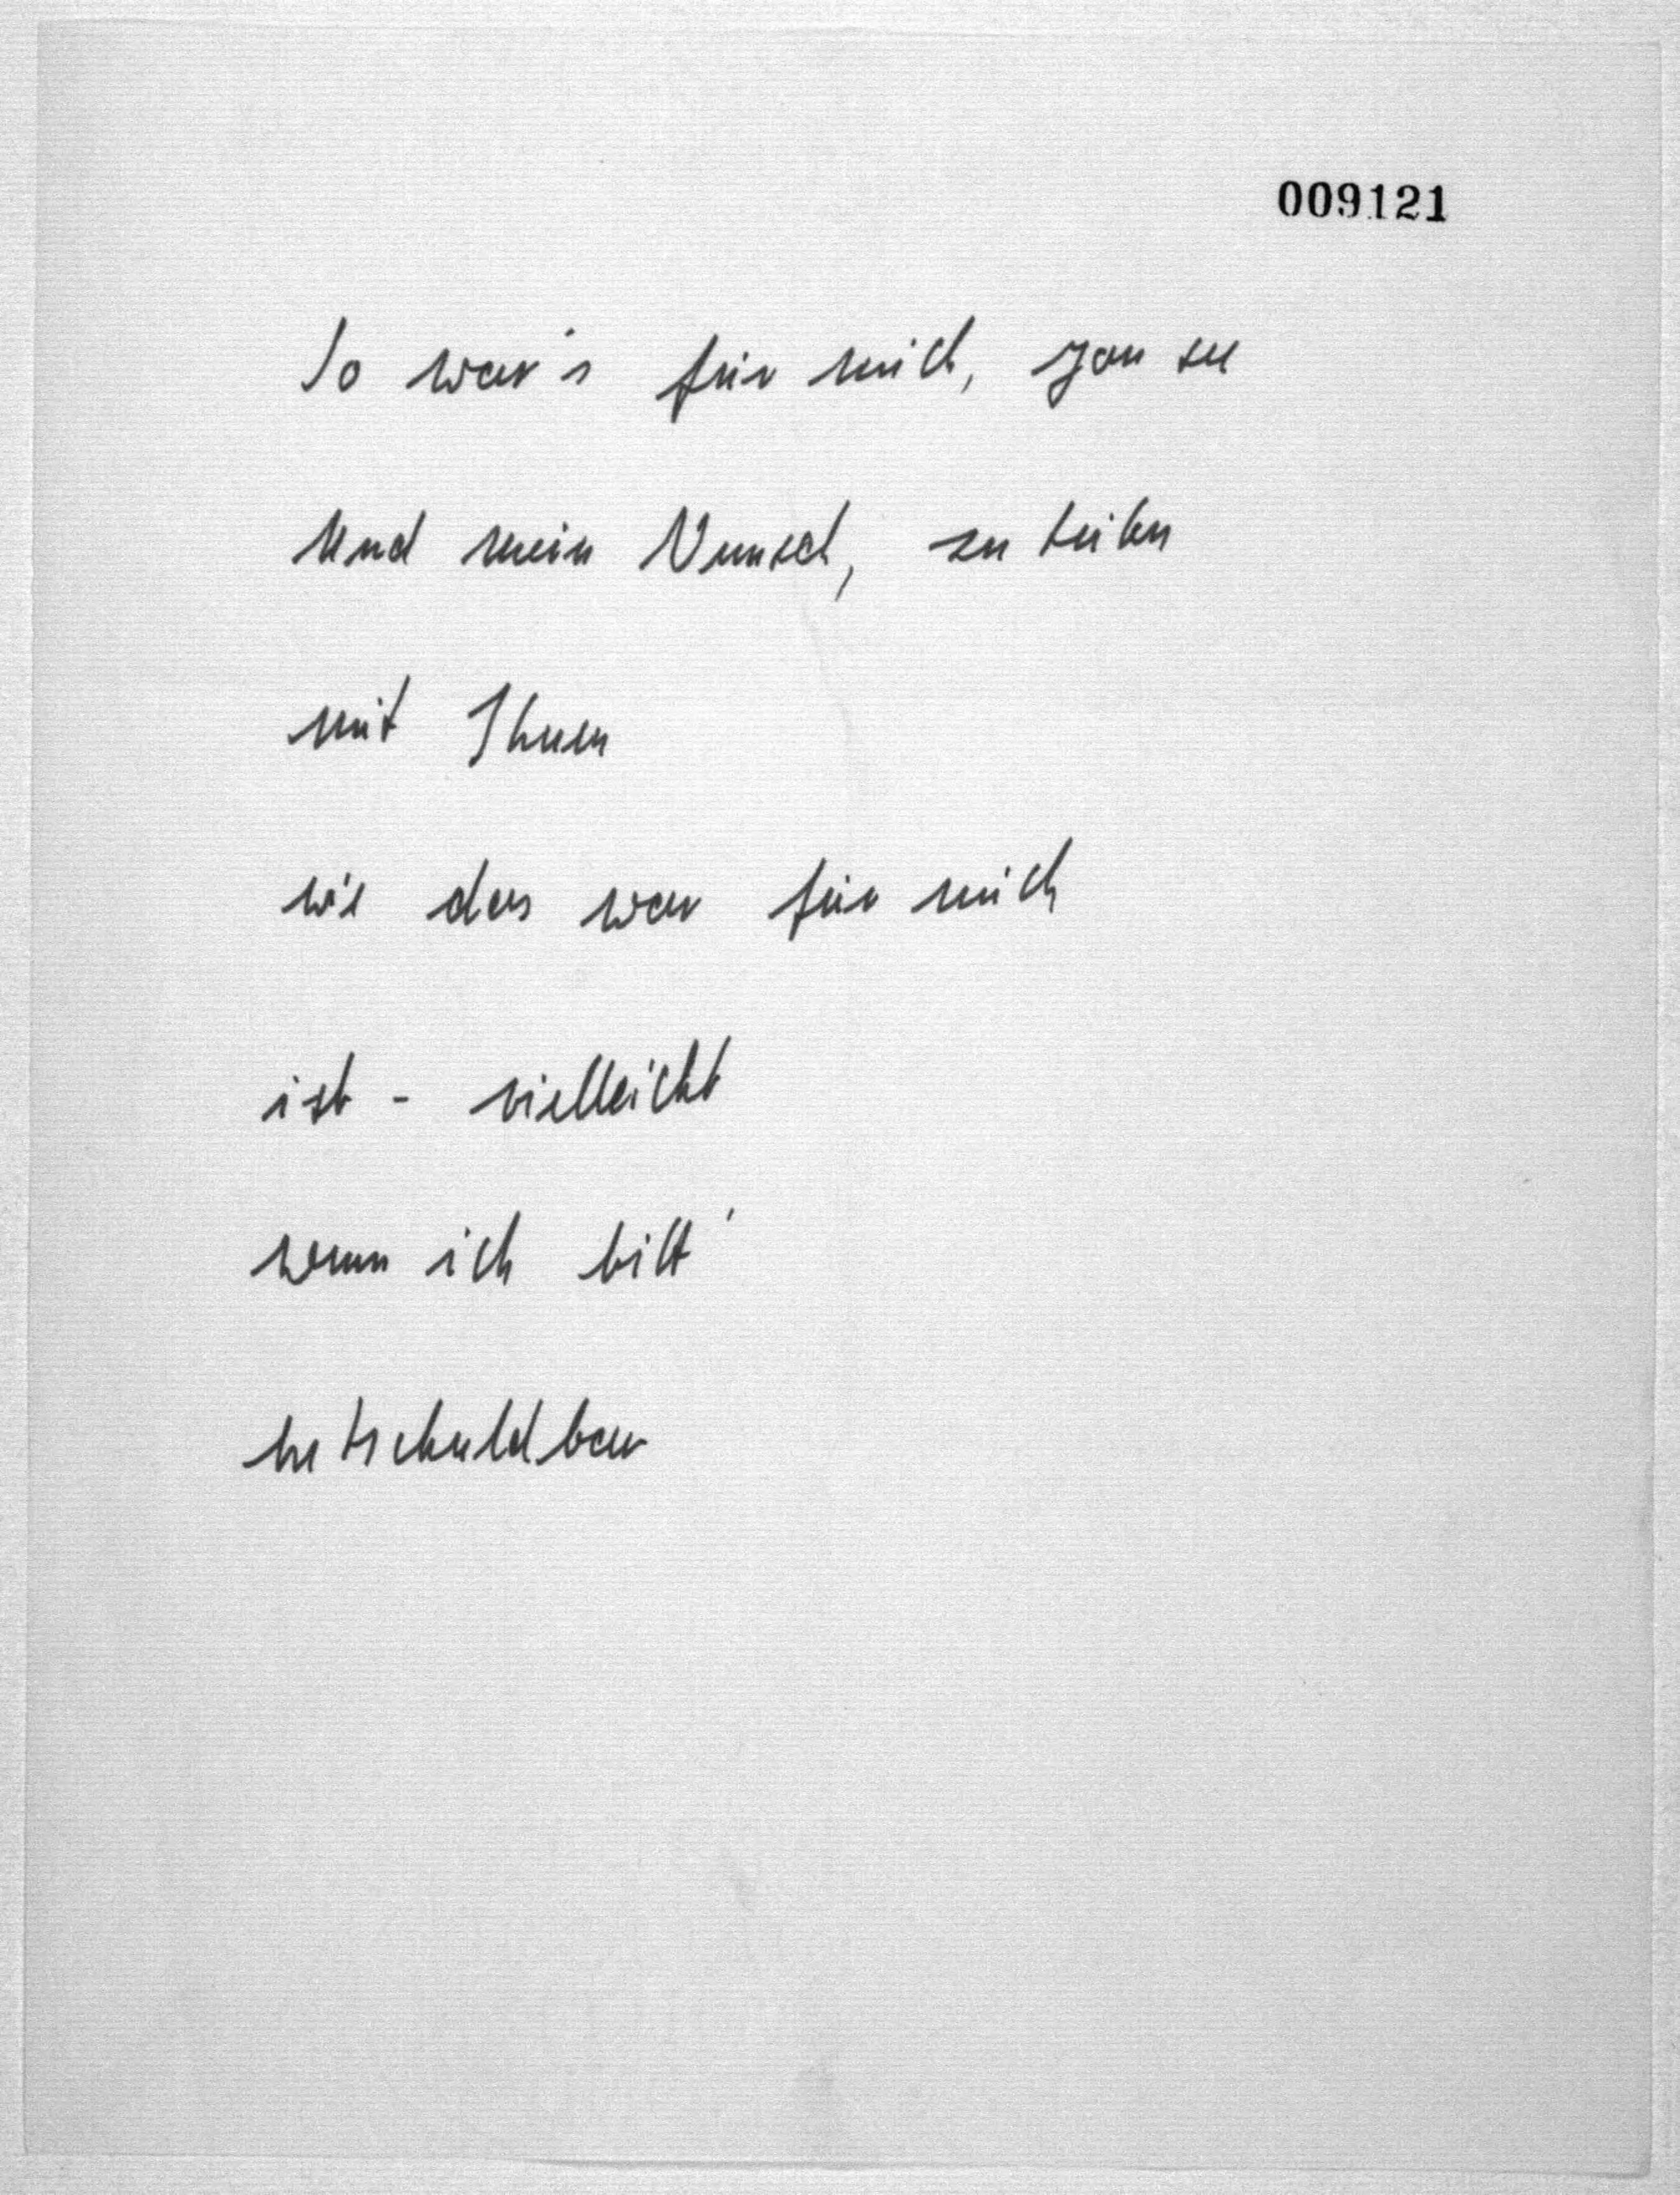 009121
So war's für mich, genau
Und mein Wunsch, zu teilen
mit Ihnen
wie das war für mich
ist - vielleicht
wenn ich bitt'
entschuldbar